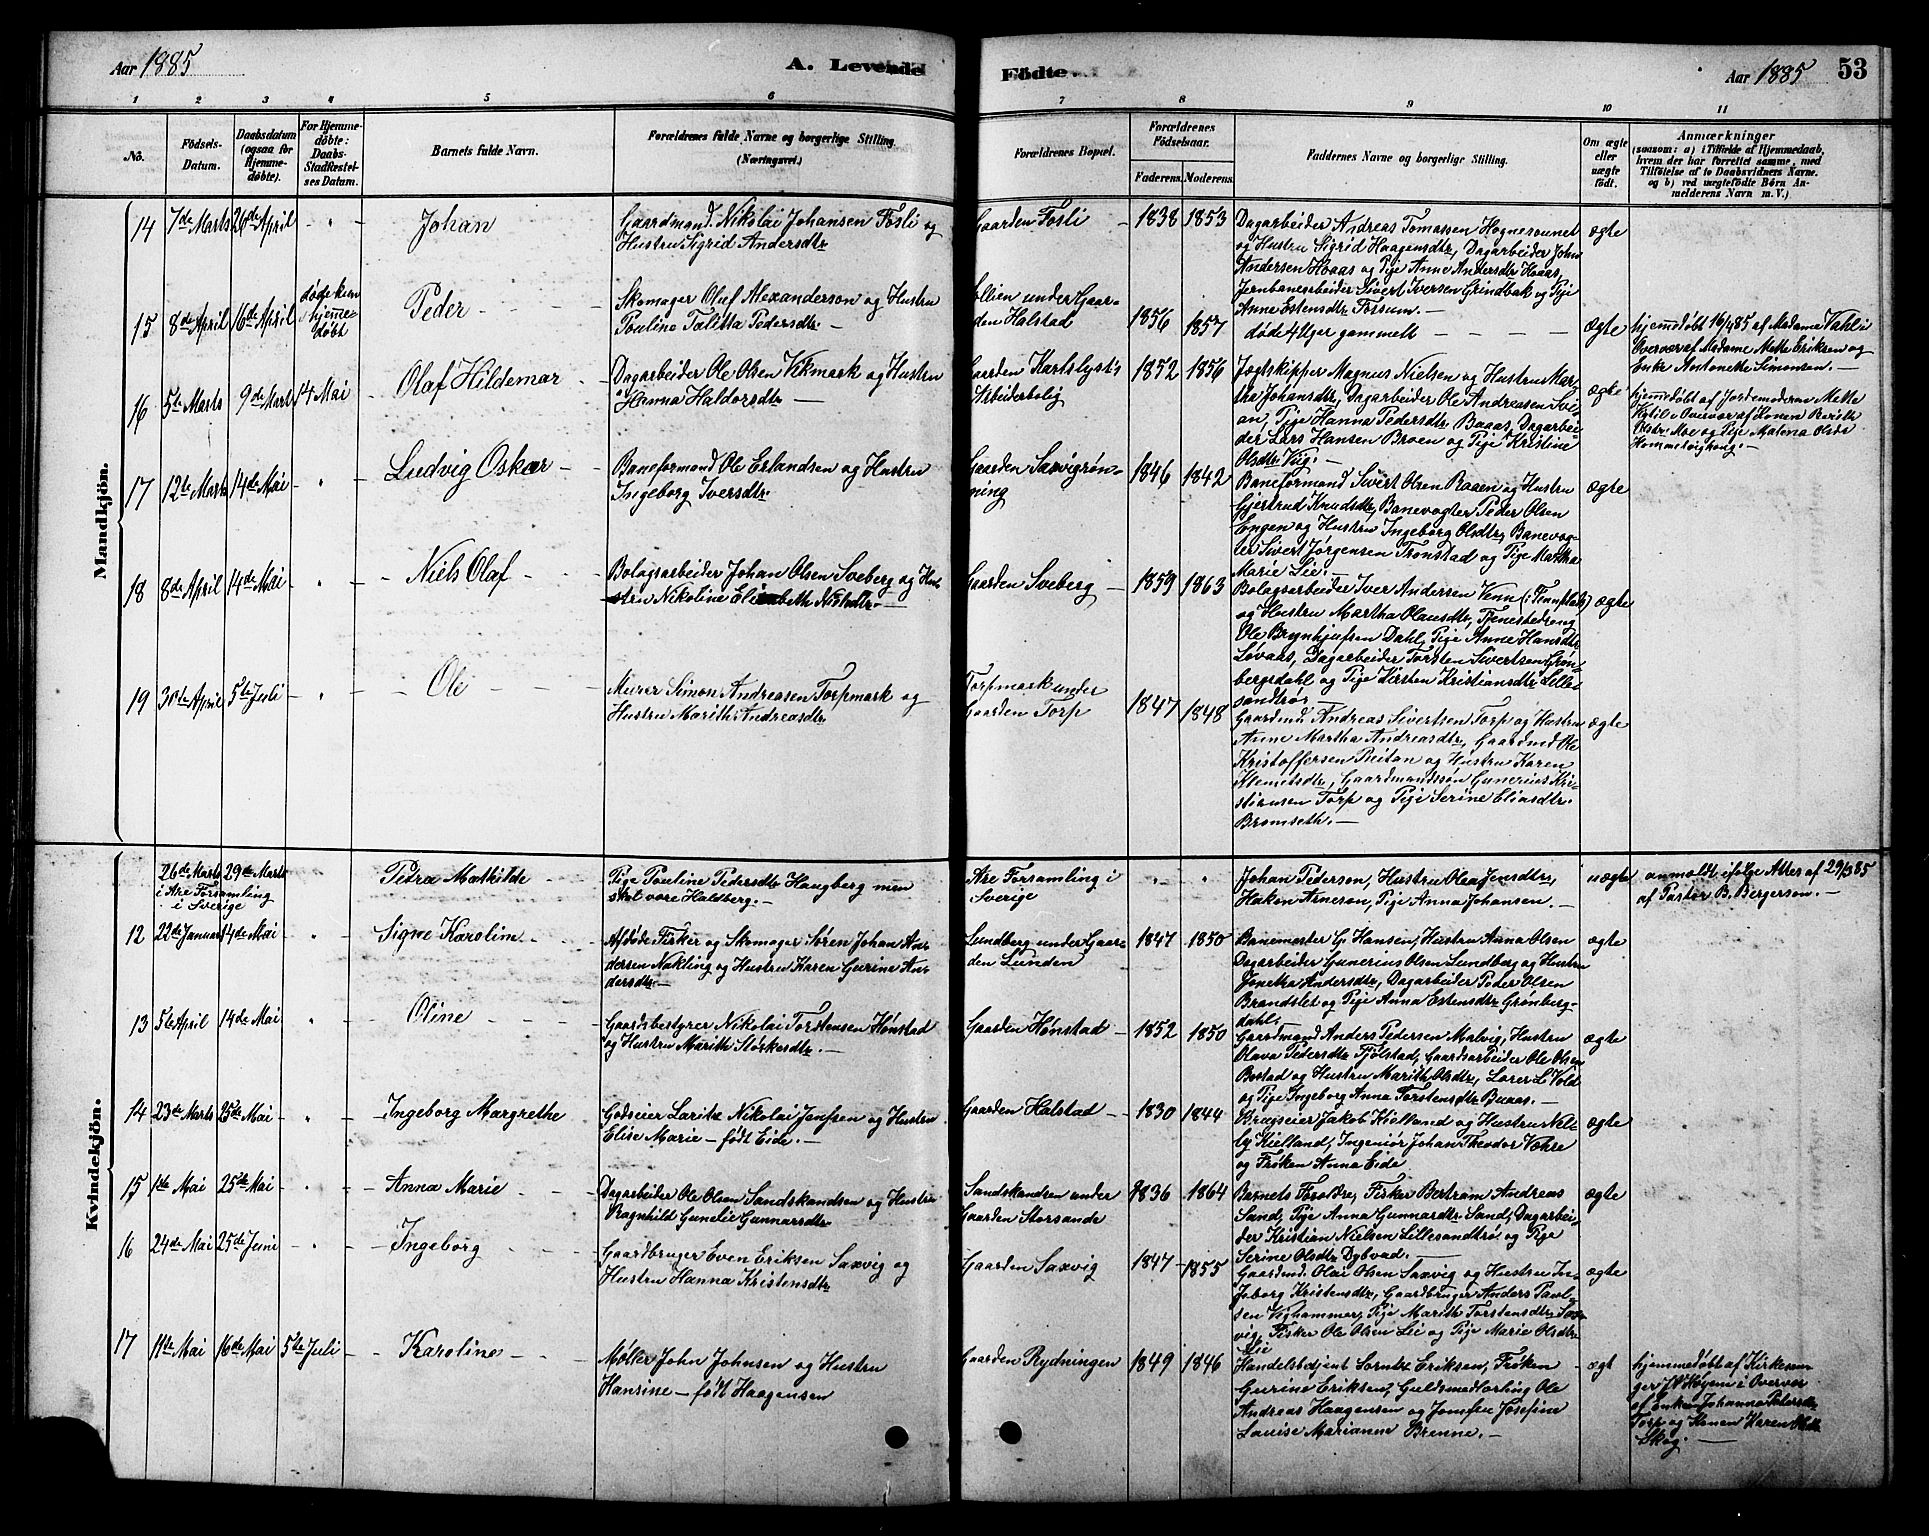 Aar 1885
A. Levende
Födte
Aar 1885 53
1 2 3 4 5 6 7 8 9 10 11
No.
Födsels-
Datum.
Daabsdatum
(ogsaa for
Hjemme-
döbte).
For Hjemme-
döbte:
Daabs-
Stadfæstel-
ses Datum.
Barnets fulde Navn.
Forældrenes fulde Navne og borgerlige Stilling.
(Næringsvei.)
Forældrenes Bopæl.
Forældrenes
Födselsaar.
Faderens. Moderens.
Faddernes Navne og borgerlige Stilling.
Om ægte
eller
uægte
födt.
Anmærkninger
(saasom: a) i Tilfælde af Hjemmedaab,
hvem der har forrettet samme, med
Tilföielse af to Daabsvidners Navne.
og b) ved uægtefödte Börn An-
melderens Navn m. V.)
Mandkjön.
14 7de Marts 26de April - " - Johan
Gaardmand Nikolai Johansen Fosli og
Hustru Sigrid Andersdtr
Gaarden Fosli - 1838 1853
Dagarbeider Andreas Tomassen Hognesaunet
og Hustru Sigrid Haagensdtr, Dagarbeider John
Andersen Hoaas og Pige Anne Andersdtr Hoaas,
Jernbanearbeider Sivert Iversen Grindbak og Pige
Anne Estensdtr Forsum. -
ægte
15 8de April 16de April
döde kun
hjemme-
döbt
Peder
Skomager Oluf Alexanderson og Hustru
Pauline Talitta Pedersdtr -
Lillien under Gaar-
den Halstad 1856 1857
döde 4 Uger gammelt
ægte
hjemmedöbt 16/4 85 af Madame Vahl i
Overvær af Madame Mette Eriksen og
Enke Antonette Simonsen. -
16 5te Marts 9de Marts 14 Mai Olaf Hildemar
Dagarbeider Ole Olsen Vikmark og Hustru
Hanna Haldorsdtr -
Gaarden Karlslyst's
Arbeiderbolig 1852 1856
Jagtskipper Magnus Nielsen og Hustru Mar-
tha Johansdtr, Dagarbeider Ole Andreasen Svi-
an, Pige Hanna Pedersdtr Baaas, Dagarbei-
der Lars Hansen Broen og Pige Kristine
Olsdtr Viig. -
ægte
hjemmedöbt af Jordemoderen Mette
i Overvær af Konen Berith
Olsdtr Moe og Pige Malena Olsdtr
17 12te Marts 14de Mai - " - Ludvig Oskar -
Baneformand Ole Erlandsen og Hustru
Ingeborg Iversdtr
Gaarden Saxvigrön-
ning 1846 1842
Baneformand Sivert Olsen Raaen og Hustru
Gjertrud Knudsdtr, Banevogter Peder Olsen
Engen og Hustru Ingeborg Olsdtr, Banevog-
ter Sivert Jörgensen Tronstad og Pige Martha
Marie Lie. -
ægte
18 8de April 14de Mai - " - Niels Olaf
Bolagsarbeider Johan Olsen Sveberg og Hu-
stru Nikoline Elisabeth Nilsdtr -
Gaarden Sveberg - 1859 1863
Bolagsarbeider Iver Andersen Venn
og Hustru Martha Olausdtr, Tjenestedreng
Ole Brynhjulfsen Dahl, Pige Anne Hansdtr
Lövaas, Dagarbeider Torsten Sivertsen Grön-
bergsdahl og Pige Kirsten Kristiansdtr Lille-
sandtrö. -
ægte
19 30de April 5te Juli - " - Ole
Murer Simon Andreasen Torpmark og
Hustru Marith Andreasdtr
Torpmark under
Gaarden Torp 1847 1848
Gaardmd. Andreas Sivertsen Torp og Hustru
Anne Martha Andreasdtr, Gaardmd Ole
Kristoffersen Reitan og Hustru Karen
Klemetsdtr, Gaardmandssön Gunerius Kri-
stiansen Torp og Pige Serine Eliasdtr.
Bromseth. -
ægte
Kvindekjön.
26de Marts 29de Marts
i Are Forsamling
i Sverige
Petra Mathilde
Pige Pauline Pedersdtr Haugberg men
skal være Haldberg. -
Are Forsamling i
Sverige
" "
Johan Pederson, Hustru Olea Jensdtr,
Hakon Arneson, Pige Anna Johansen. -
uægte
anmeldt ifölge Attes af 29/3 85
af Pastor B. Bergerson. -
12 22de Januar 14de Mai " Signe Karoline
Afdöde Fisker og Skomager Sören Johan An-
dersen Nakling og Hustru Karen Gurine An-
dersdtr. -
Lundberg under Gaar-
den Lunden 1847 1850
Banemester G. Hansen, Hustru Anna Olsen
Dagarbeider Gunerius Olsen Lundberg og Hustru
Jonetha Andersdtr, Dagarbeider Peder Olsen
Brandslet og Pige Anna Estensdtr Grönberg-
dahl. -
ægte
13 5te April 14de Mai " - Oline
Gaardsbestyrer Nikolai Torstensen Hönstad
og Hustru Marith Störkersdtr. -
Gaarden Hönstad - 1852 1850
Gaardmand Anders Pedersen Malvig, Hustru
Olava Pedersdtr Fjölstad, Gaardsarbeider Ole Olsen
Bostad og Hustru Marith Olsdtr, Lærer L Vold
og Pige Ingeborg Anna Torstensdtr Buaas. -
ægte
14 23de Marts 25de Mai - " - Ingeborg Margrethe
Godseier Lauritz Nikolai Jenssen og Hustru
Elise Marie - født Eide. -
Gaarden Halstad - 1830 1844
Brugseier Jakob Kielland og Hustru Nel-
ly Kielland, Ingeniör Johan Theodor Væhre
og Fröken Anna Eide
ægte
15 1ste Mai 25de Mai - " - Anna Marie
Dagarbeider Ole Olsen Sandskandsen og Hustru
Ragnhild Gunelie Gunnarsdtr
Sandskandsen under
Gaarden Storsande 1836 1864
Barnets Forældre, Fisker Bertram Andreas
Sand, Pige Anna Gunnarsdtr Sand, Dagarbei-
der Kristian Nielsen Lillesandtrö og Pige
Serine Olsdtr Dybvad. -
ægte
16 24de Mai 25de Juni - " - Ingeborg
Gaardbruger Even Eriksen Saxvig og
Hustru Hanna Kristensdtr
Gaarden Saxvig 1847 - 1855
Gaardmd. Olai Olsen Saxvig og Hustru In-
geborg Kristensdtr, Gaardbruger Anders Paul-
sen Vighammer, Pige Marith Torstensdtr Sax-
vig, Fisker Ole Olsen Lie og Pige Marie Olsdtr
Lie
ægte
17 11te Mai 16de Mai 5te Juli - Karoline
Møller John Johnsen og Hustru
Hansine - født Haagensen
Gaarden Rydningen 1849 1846
Handelsbetjent Lorntz Eriksen, Fröken
Gurine Eriksen, Guldsmedlærling Ole
Andreas Haagensen og Jomfru Josefine
Louise Marianne Brenne. -
ægt
hjemmedöbt af Kirkesan-
ger Høyem i Overvær
af Enken Johanna Petersdtr
Torp og Konen Karen Olsdtr
Skog. -